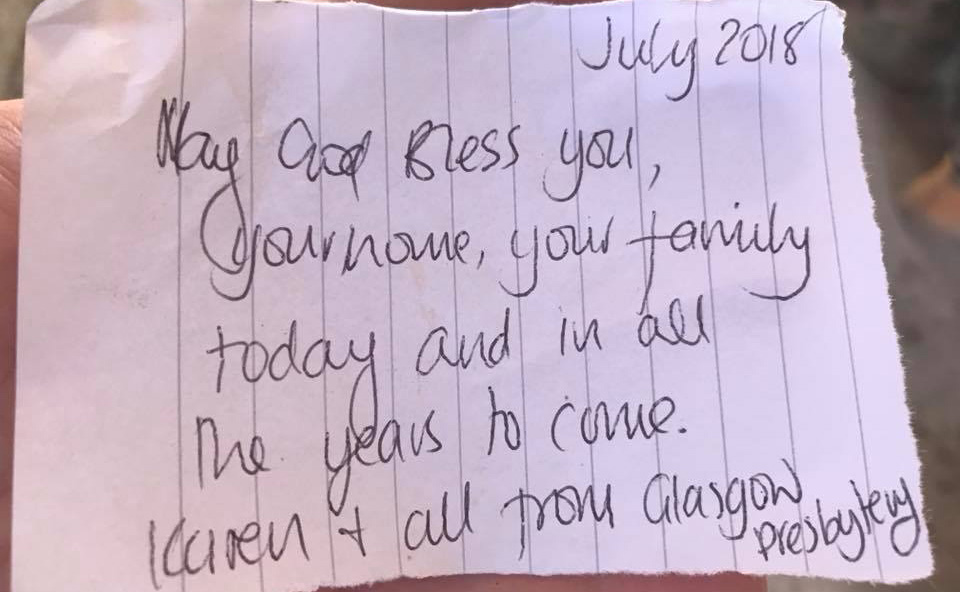 July 2018
May God Bless you,
your home, your family
today and in all
the years to come.
Karen + all from Glasgow
presbytery